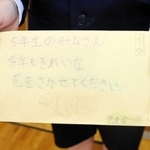 5年生のみなさん
今年もきれいな
花をさかせてください